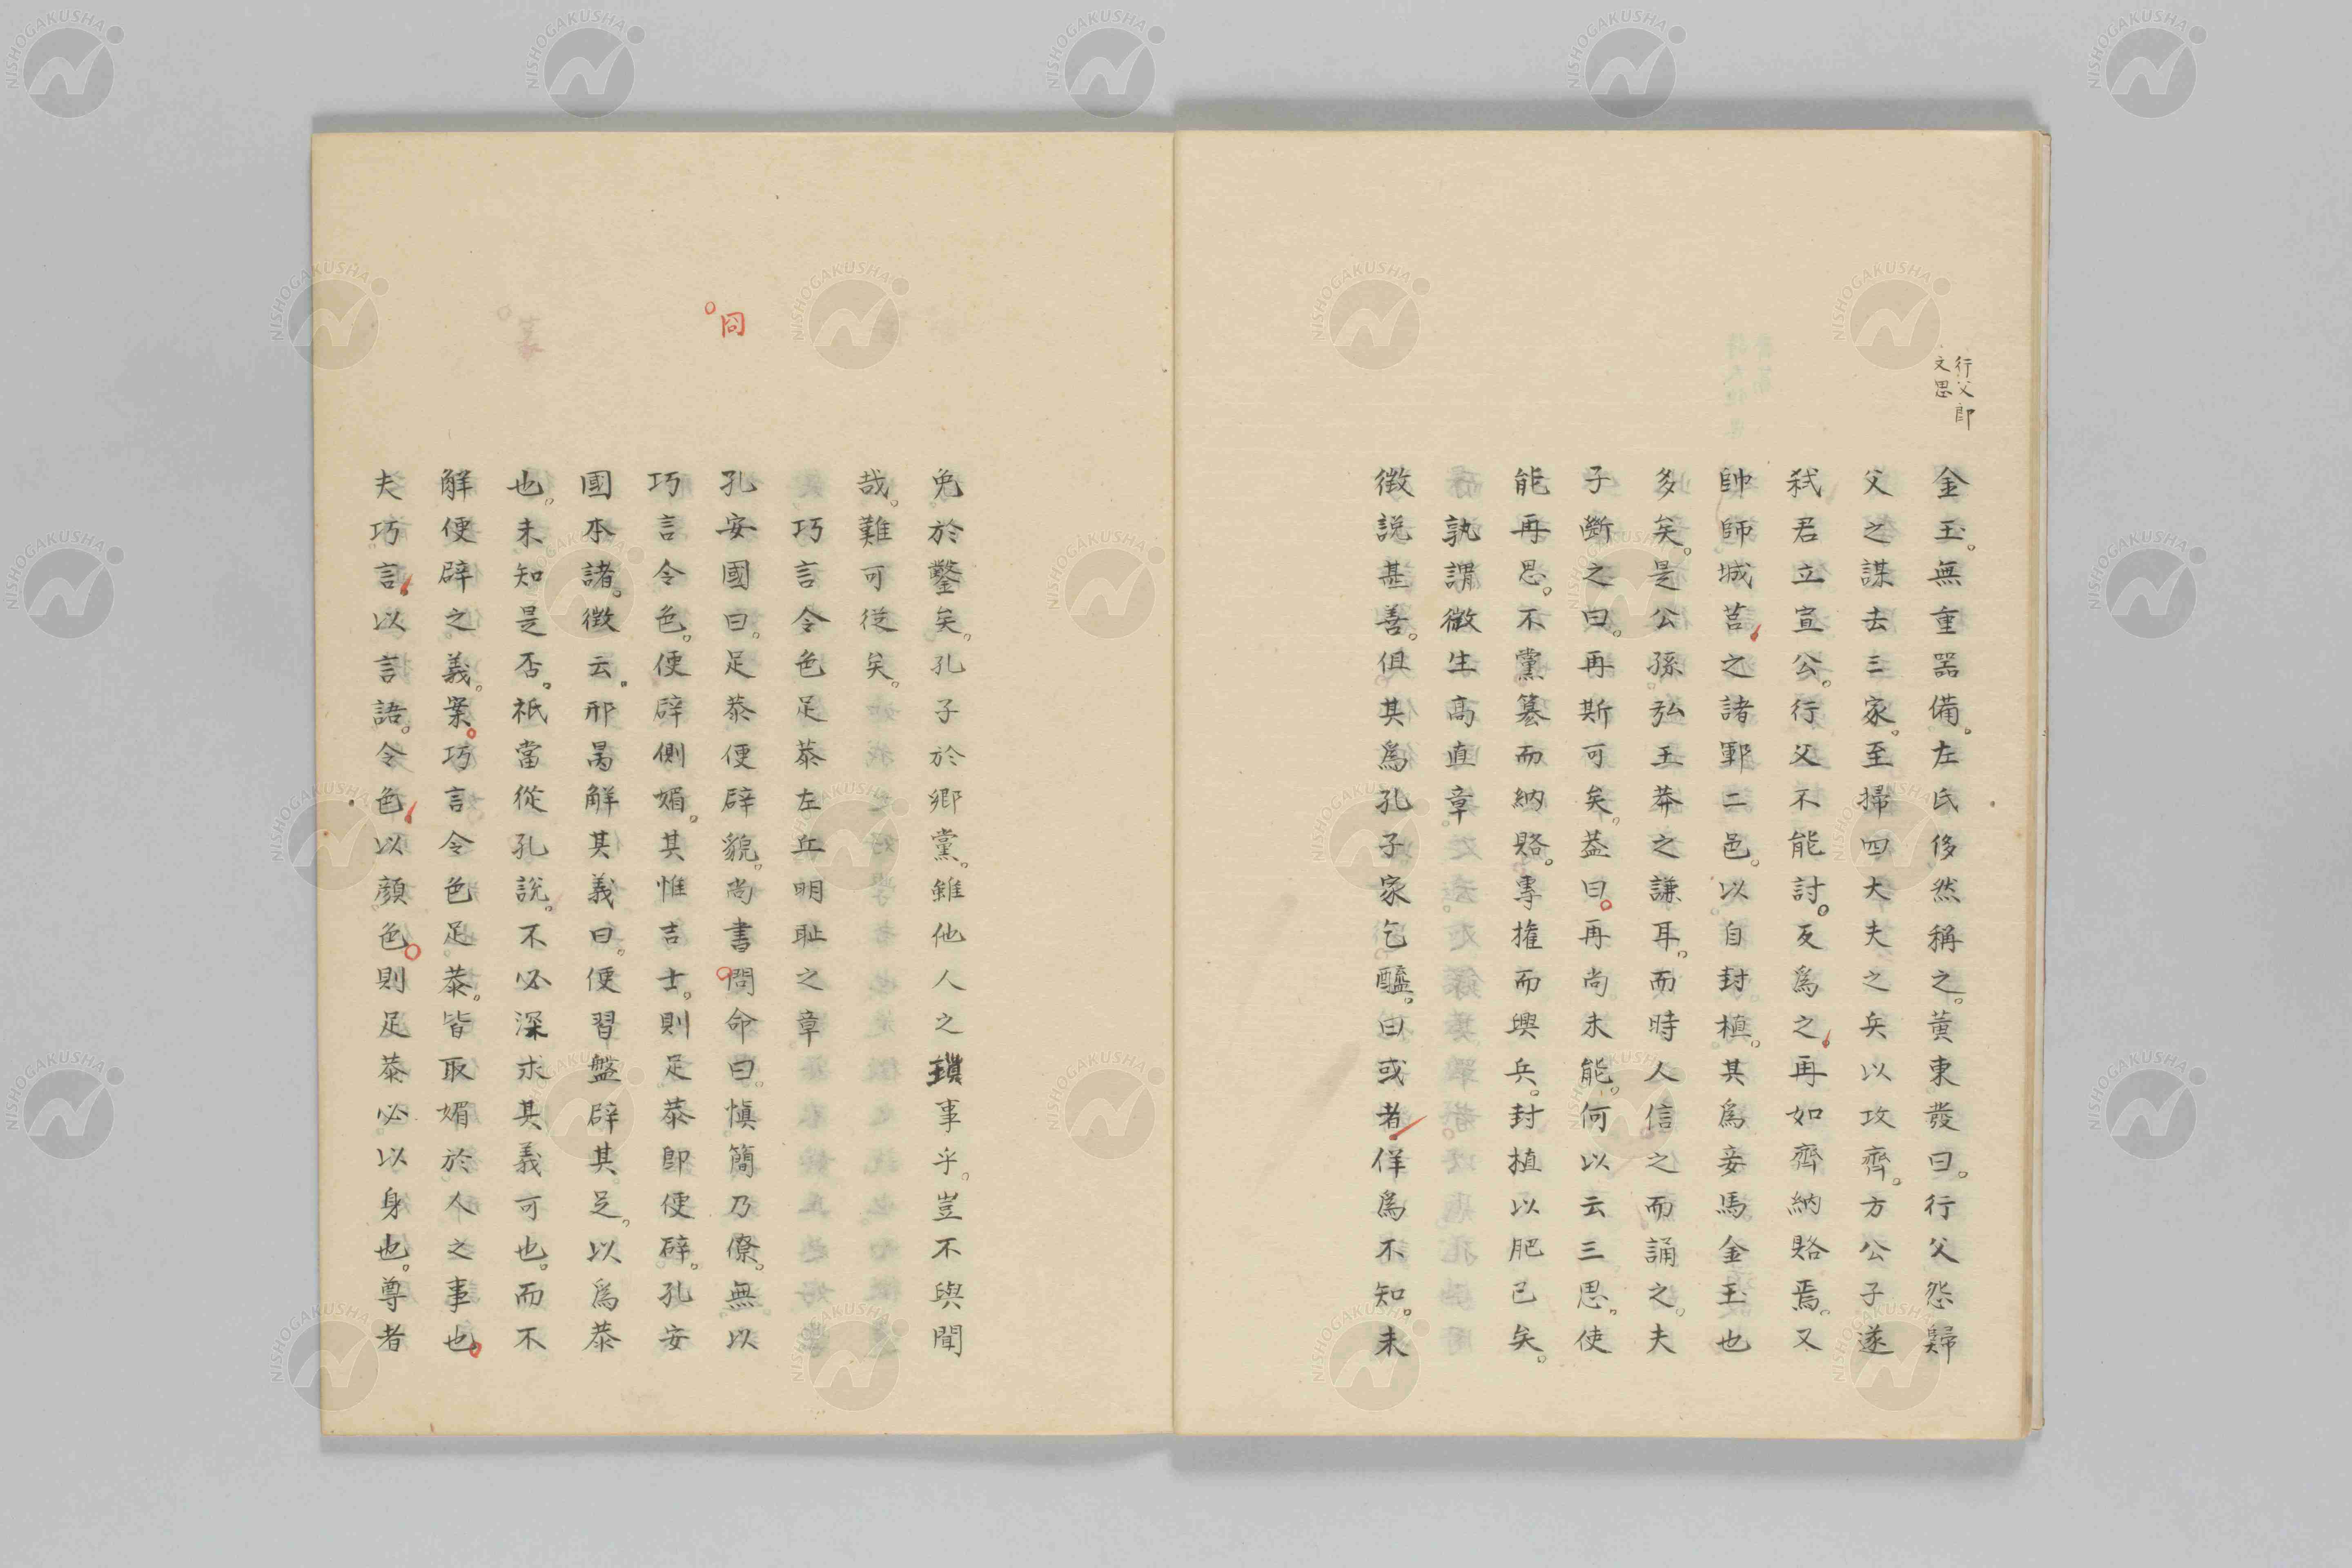 行父即
文思
金玉。無重器備。左氏侈然稱之。黄東發曰。行父怨歸
父之謀去三家。至掃四大夫之兵以攻齊。方公子遂
弑君立宣公。行父不能討。反爲之再如齊納賂焉。又
帥師城莒之諸鄆二邑。以自封植。其爲妾馬金玉也
多矣。是公孫弘王莽之謙耳。而時人信之而誦之。夫
子斷之曰。再斯可矣。蓋曰。再尚未能。何以云三思。使
能再思。不黨簒而納賂。專權而興兵。封植以肥已矣。
孰謂微生高直章
徴説甚善。俱其爲孔子家乞醯。曰或者佯爲不知。未
免於鑿矣。孔子於鄉黨。雖他人之瑣事乎。豈不與聞
哉。難可從矣。
巧言令色足恭左丘明恥之章
冏
孔安國曰。足恭便辟貌。尚書問命曰。愼簡乃僚。無以
巧言令色。便辟側媚。其惟吉士。則足恭即便辟。孔安
國本諸。徴云。邢昺解其義曰。便習盤辟其足。以爲恭
也。未知是否。祇當從孔説。不必深求其義可也。而不
解便辟之義。案。巧言令色足恭。皆取媚於人之事也。
夫巧言以言語。令色以顔色。則足恭必以身也。尊者
NISHOGAKUSHA